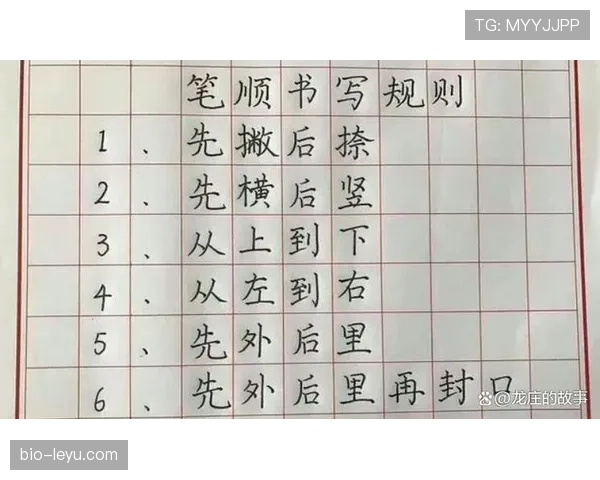 TG: MYYJJPP
笔顺书写规则
1、先撇后捺
2、先横后竖
3、从上到下
4、从左到右
5、先外后里
6、先外后里再封口
龙庄的故事
bio-leyu.com